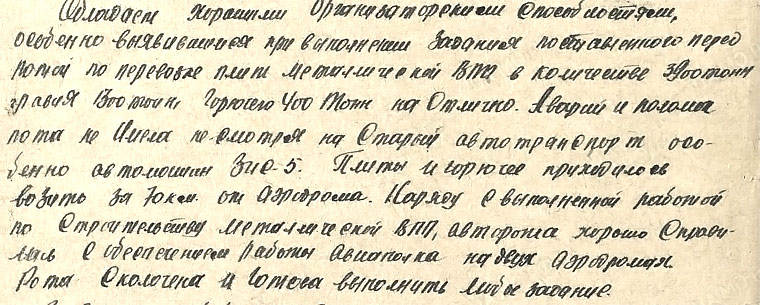 Обладает хорошими организаторскими способностями,
особенно выявившиеся при выполнении задания поставленного перед
ротой по перевозке плит металлической ВПП в количестве тонн
гравия тонн, горючего 400 тонн на отлично. Аварий и поломок
рота не имела не смотря на старый автотранспорт осо-
бенно автомашин ЗИС-5. Плиты и горючее приходилось
возить за км. от аэродрома. Наряду с выполненной работой
по строительству металлической ВПП, авторота хорошо справи-
лась с обеспечением работы авиаполка на двух аэродромах
Рота сколочена и готова выполнить любое задание.